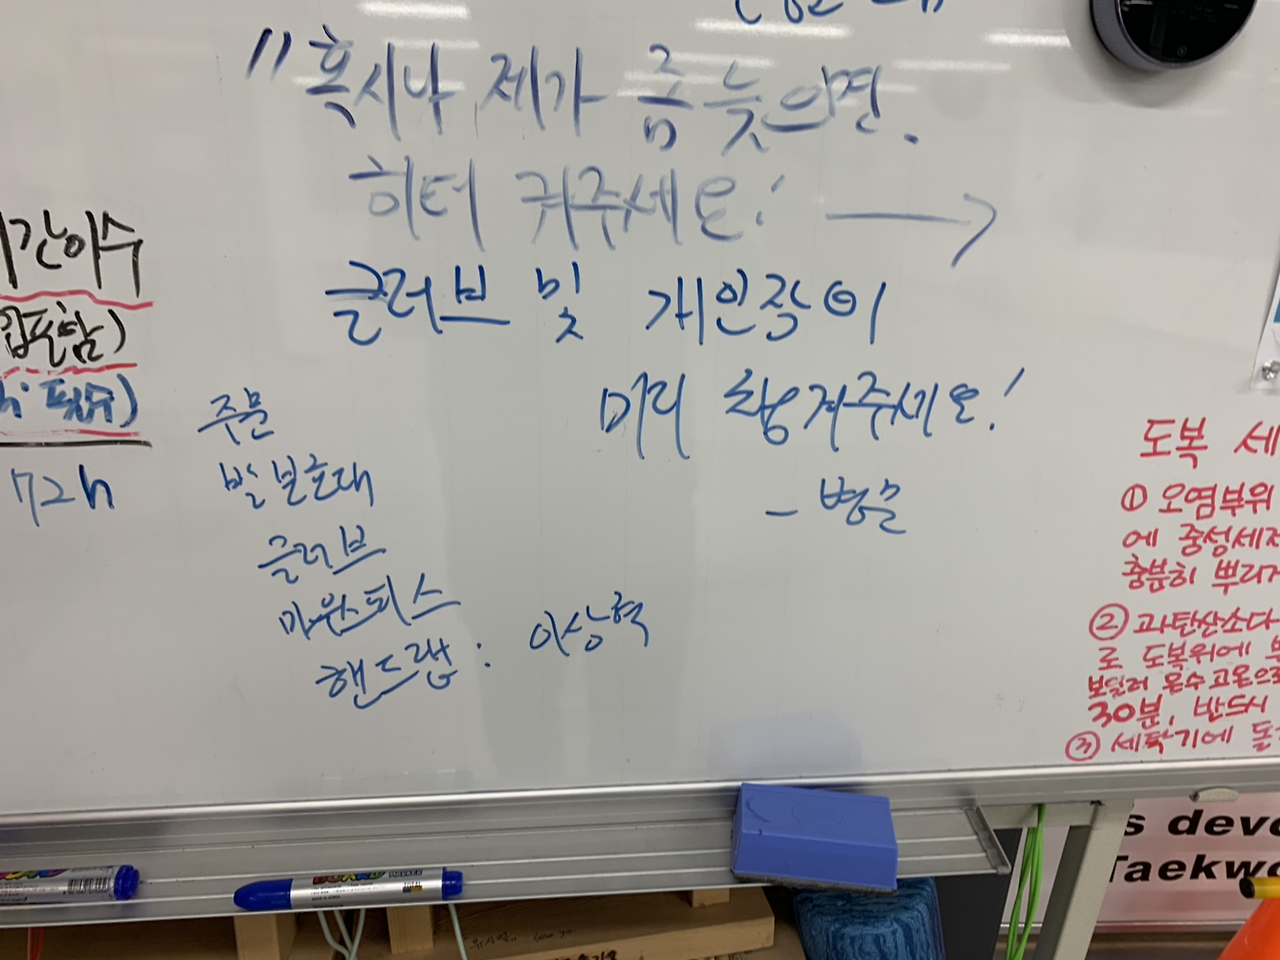 "혹시나 제가 좀 늦으면.
히터 켜주세요! →
글러브 및 개인장비
미리 챙겨주세요!
- 병문
간이수
포함)
72h
주문
발보호대
글러브
마우스피스
핸드랩 : 이상혁
도복 세
① 오염부위
에 중성세제
충분히 뿌리
② 과탄산소다
로 도복위에
보일러 온수고온으로
30분, 반드시
③ 세탁기에 돌
s deve
Taekwo
MARKER